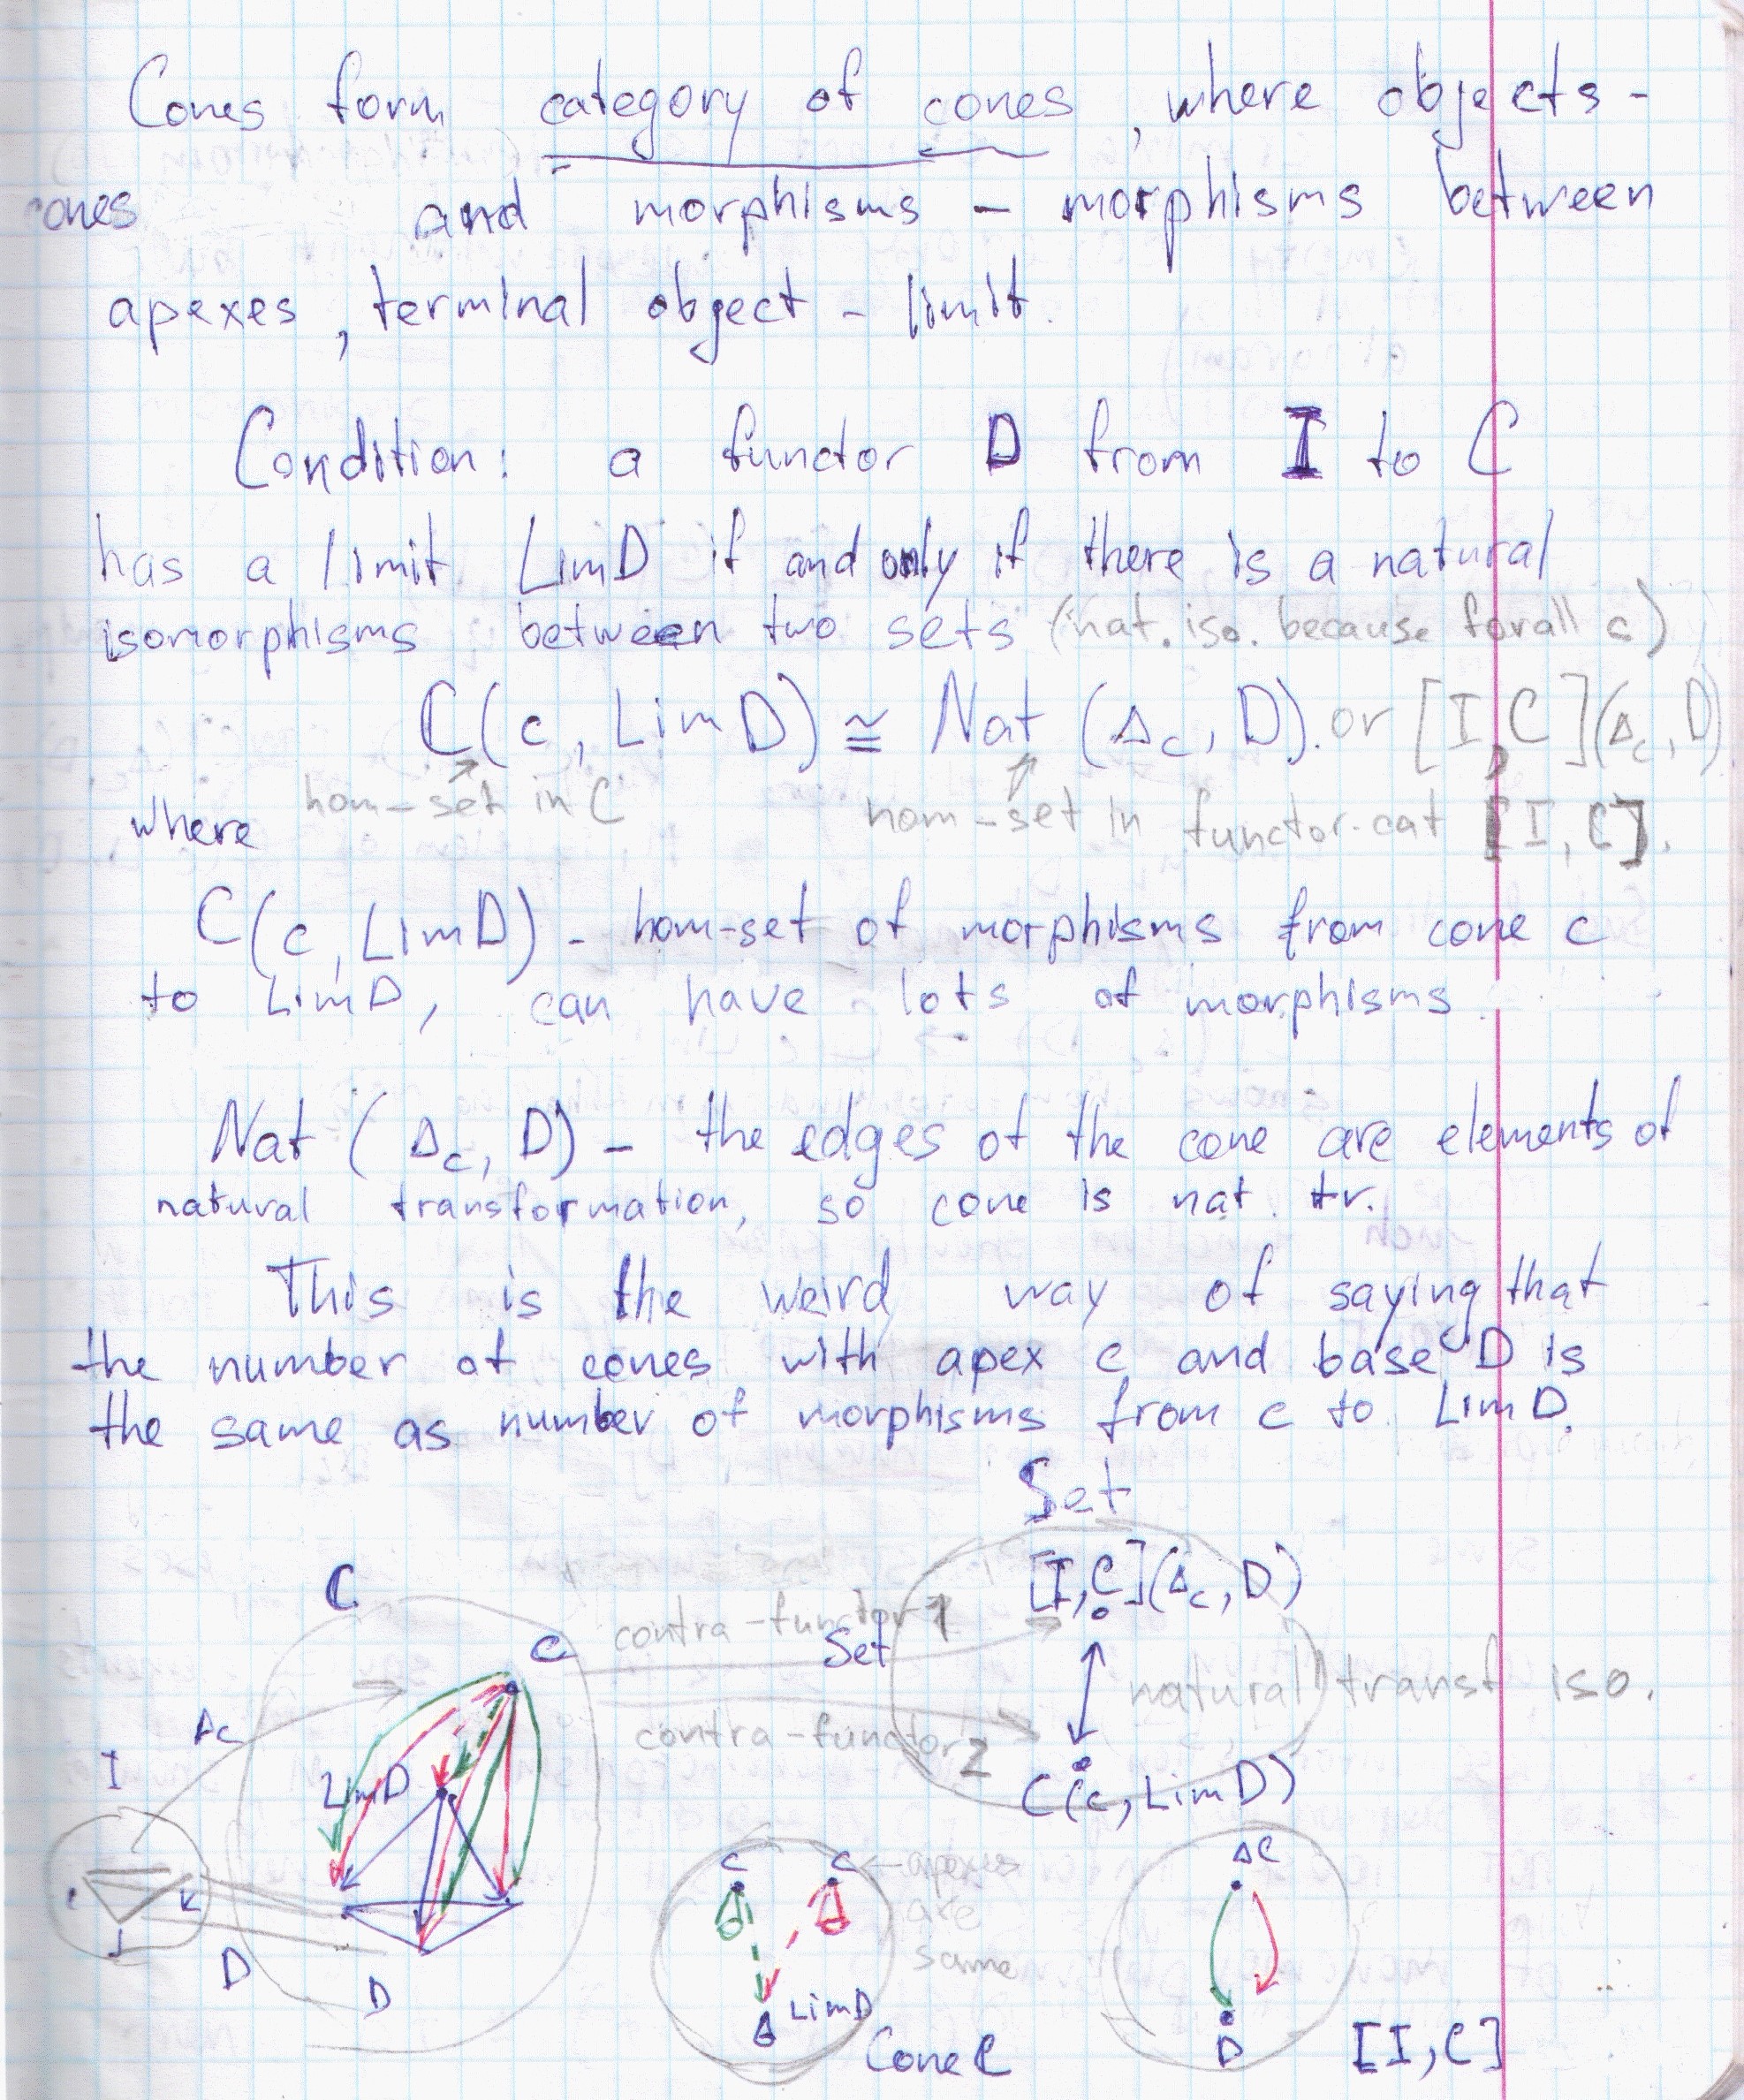 Cones form category of cones, where objects -
cones and morphisms - morphisms between
apexes, terminal object - limit.
Condition: a functor D from I to C
has a limit LimD if and only if there is a natural
isomorphisms between two sets (nat. iso. because forall c)
C(c, LimD) ≅ Nat (Δc, D). or [I,C](Δc, D)
where hom-set in C hom-set in functor-cat [I, C].
C(c, LimD) - hom-set of morphisms from cone c
to LimD, can have lots of morphisms.
Nat (Δc, D) - the edges of the cone are elements of
natural transformation, so cone is nat. tr.
This is the weird way of saying that
the number of cones with apex c and base D is
the same as number of morphisms from c to LimD.
Set
[I,C](Δc, D)
C
contra-functor 1
Set
c
natural transf iso.
Δc
contra-functor 2
I
LimD
C(c, LimD)
ΔC
c c ← apexes
i k
are
J
same
D
D
LimD
Cone C
D
[I,C]